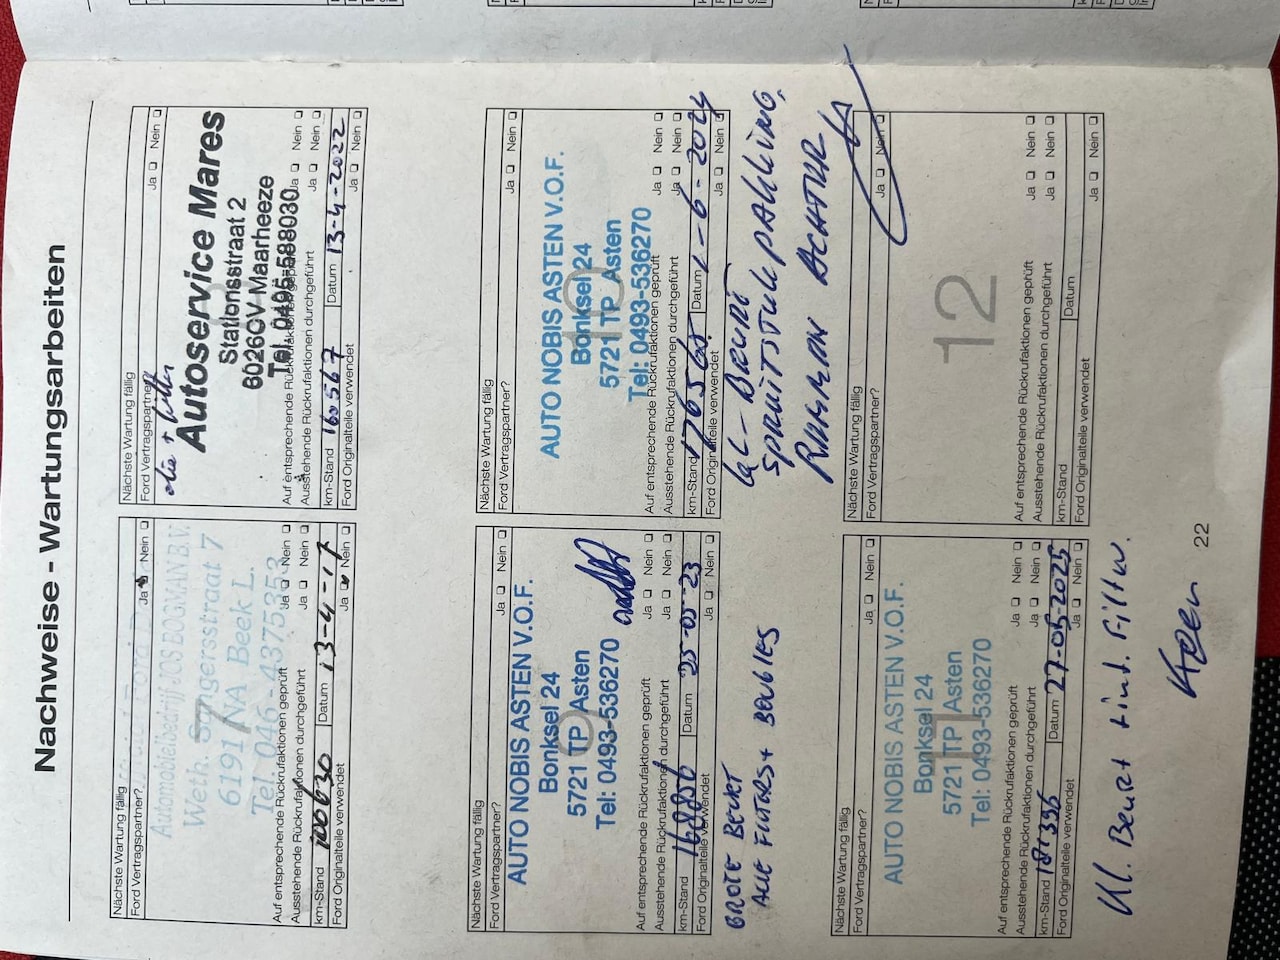 Nachweise - Wartungsarbeiten
Nächste Wartung fällig
Ford Vertragspartner? Ja Nein
Automobielbedrijf JOS BOGMAN B.V.
Weth. Sangersstraat 7
6191 NA Beek L.
Tel. 046 - 4375353
7
Auf entsprechende Rückrufaktionen geprüft Ja Nein
Ausstehende Rückrufaktionen durchgeführt Ja Nein
km-Stand 100630 Datum 13-4-17
Ford Originalteile verwendet Ja Nein
Nächste Wartung fällig
Ford Vertragspartner? Ja Nein
olie + filter
Autoservice Mares
Stationsstraat 2
6026CV Maarheeze
Tel. 0495-588030
Auf entsprechende Rückrufaktionen geprüft Ja Nein
Ausstehende Rückrufaktionen durchgeführt Ja Nein
km-Stand 160567 Datum 13-4-2022
Ford Originalteile verwendet Ja Nein
Nächste Wartung fällig
Ford Vertragspartner? Ja Nein
AUTO NOBIS ASTEN V.O.F.
Bonksel 24
5721 TP Asten
Tel: 0493-536270
9
Auf entsprechende Rückrufaktionen geprüft Ja Nein
Ausstehende Rückrufaktionen durchgeführt Ja Nein
km-Stand 168856 Datum 25-05-23
Ford Originalteile verwendet Ja Nein
GROTE BEURT
ALLE FILTERS + BOUGIES
Nächste Wartung fällig
Ford Vertragspartner? Ja Nein
AUTO NOBIS ASTEN V.O.F.
Bonksel 24
5721 TP Asten
Tel: 0493-536270
10
Auf entsprechende Rückrufaktionen geprüft Ja Nein
Ausstehende Rückrufaktionen durchgeführt Ja Nein
km-Stand 176560 Datum -6-2024
Ford Originalteile verwendet Ja Nein
BEURT
SPRUITSTUK PAKKING,
REMMEN ACHTER
Nächste Wartung fällig
Ford Vertragspartner? Ja Nein
AUTO NOBIS ASTEN V.O.F.
Bonksel 24
5721 TP Asten
Tel: 0493-536270
11
Auf entsprechende Rückrufaktionen geprüft Ja Nein
Ausstehende Rückrufaktionen durchgeführt Ja Nein
km-Stand 181396 Datum 27-05-2025
Ford Originalteile verwendet Ja Nein
Kl. Beurt + int. Filter.
Nächste Wartung fällig
Ford Vertragspartner? Ja Nein
12
Auf entsprechende Rückrufaktionen geprüft Ja Nein
Ausstehende Rückrufaktionen durchgeführt Ja Nein
km-Stand Datum
Ford Originalteile verwendet Ja Nein
22